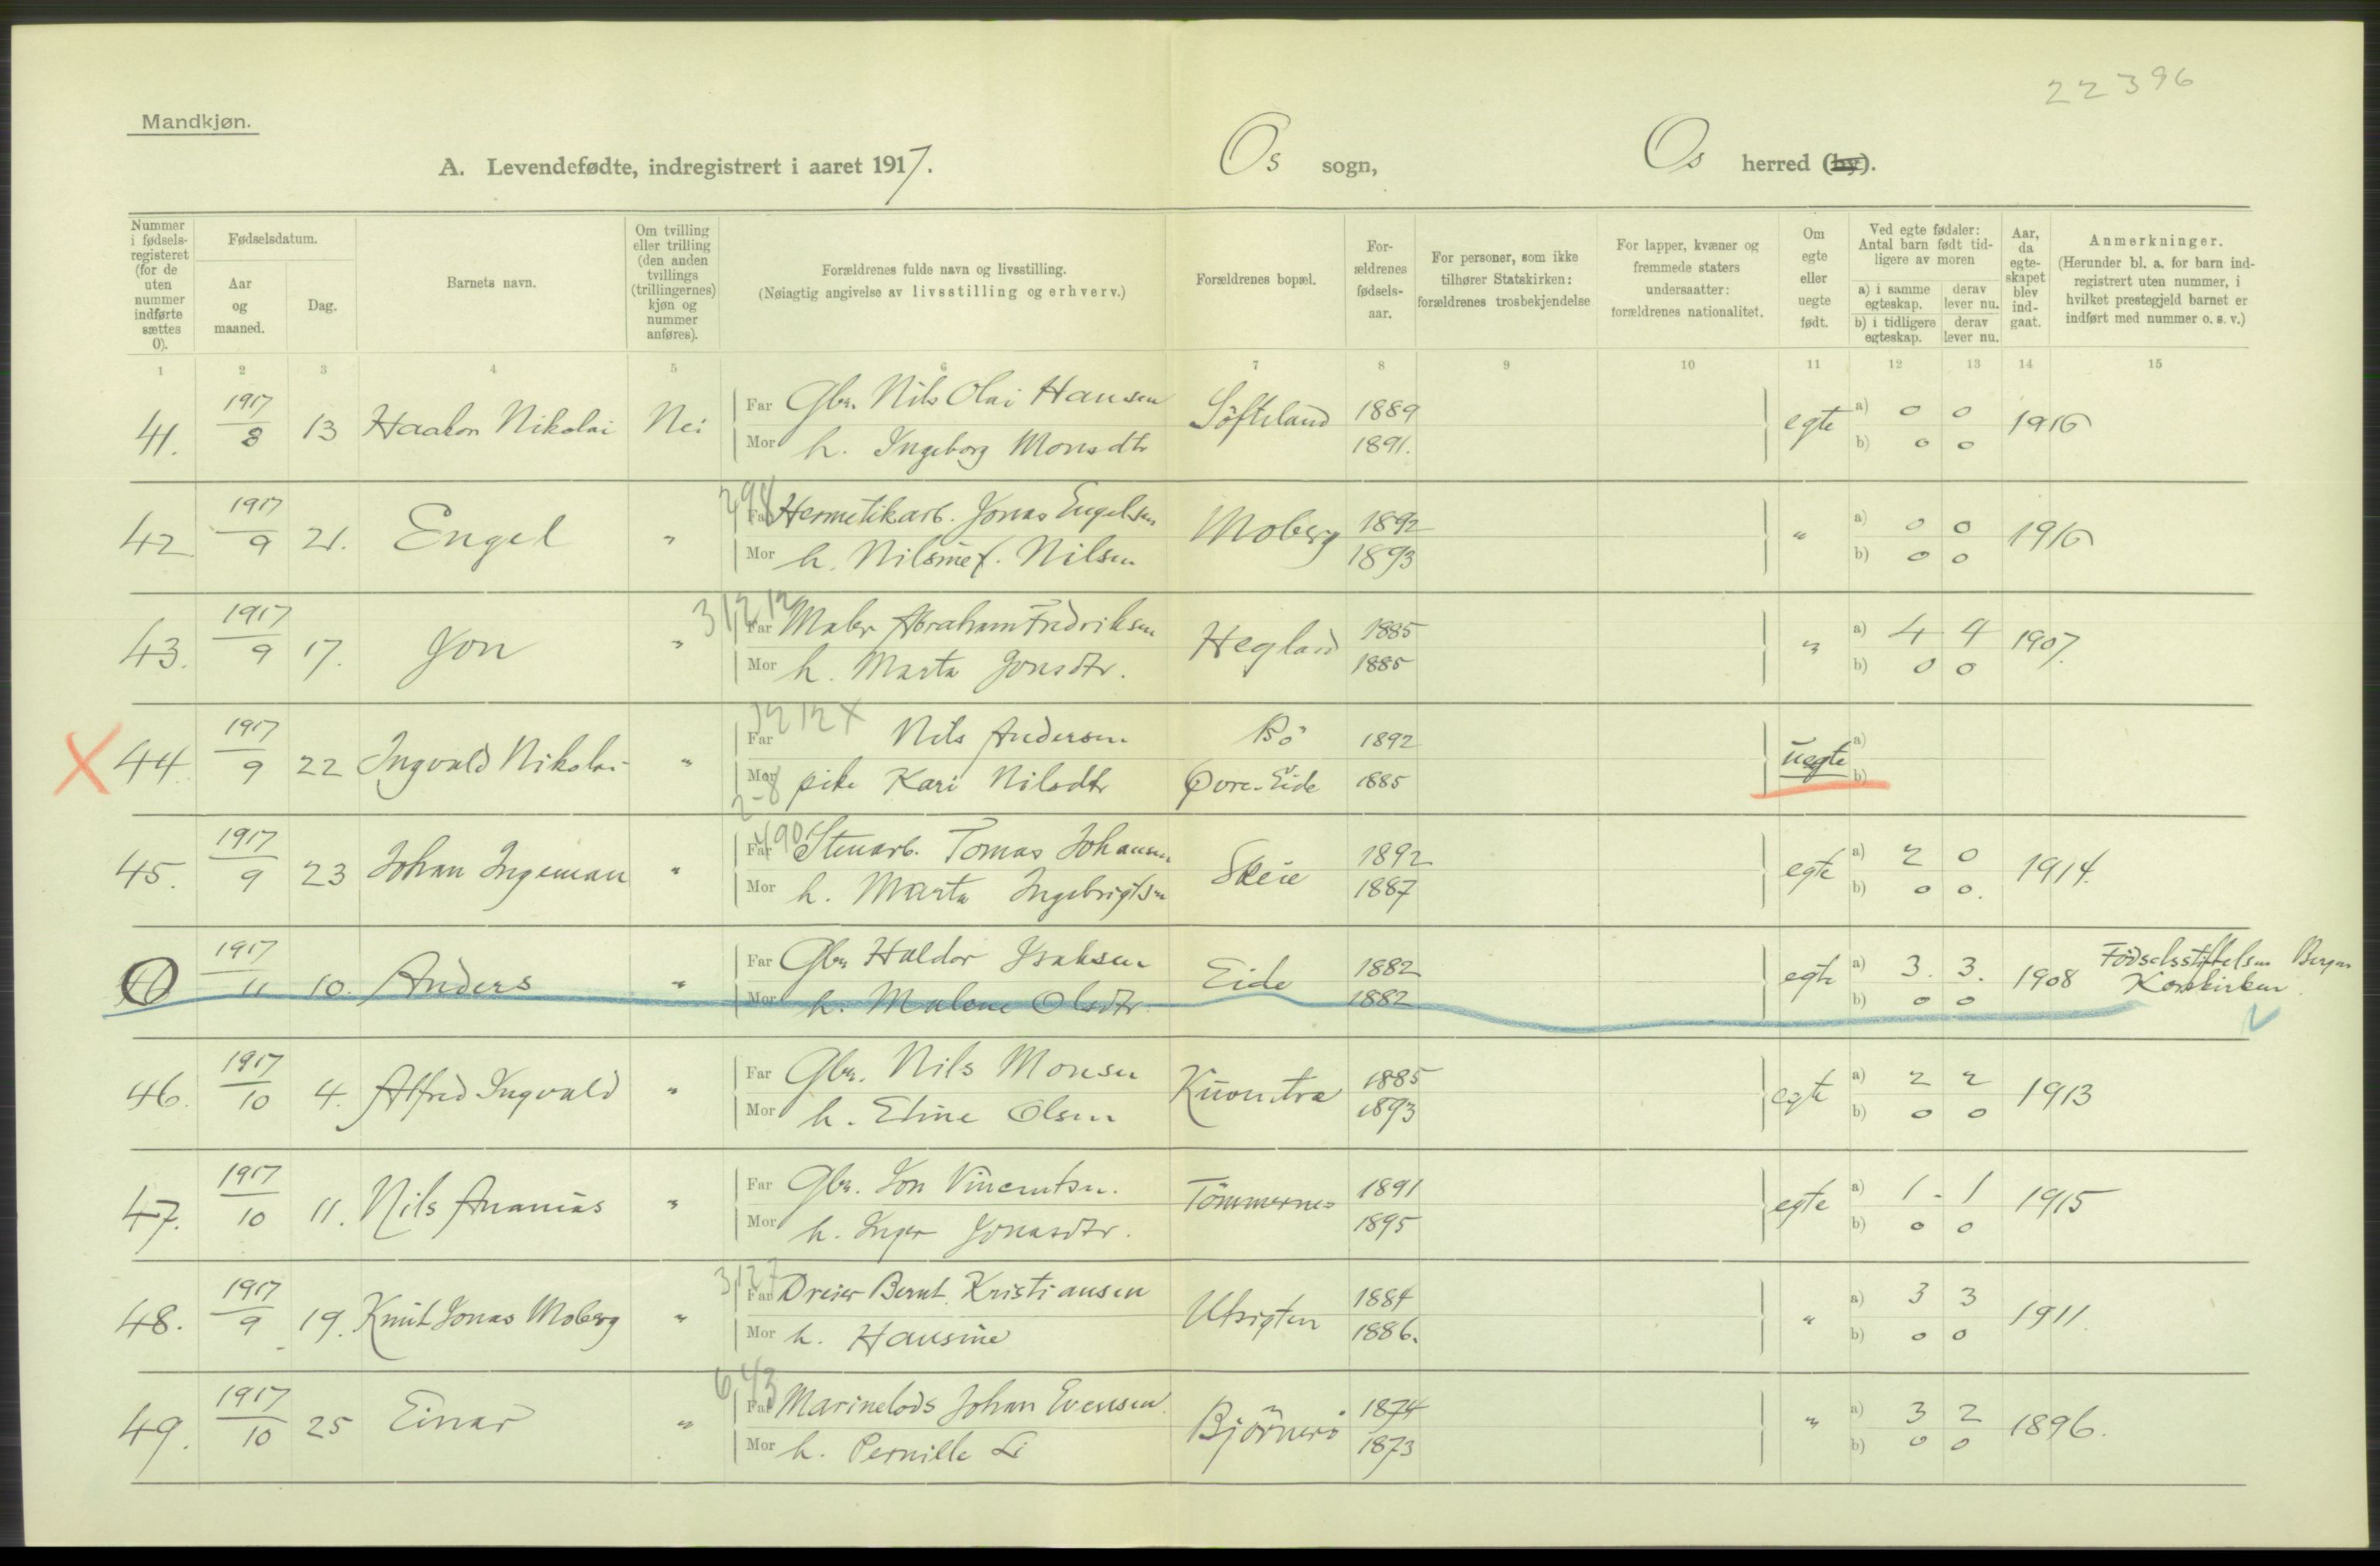 22396
Mandkjøn.
A. Levendefødte, indregistrert i aaret 1917. Os sogn, Os herred (by).
Nummer i fødsels-registeret (for de uten nummer indførte sættes 0).
Fødselsdatum.
Aar og maaned.
Dag.
Barnets navn.
Om tvilling eller trilling (den anden tvillings (trillingernes) kjøn og nummer anføres).
Forældrenes fulde navn og livsstilling.
(Nøiagtig angivelse av livsstilling og erhverv.)
Forældrenes bopæl.
For-ældrenes fødsels-aar.
For personer, som ikke tilhører Statskirken: forældrenes trosbekjendelse
For lapper, kvæner og fremmede staters undersaatter: forældrenes nationalitet.
Om egte eller uegte født.
Ved egte fødsler: Antal barn født tid-ligere av moren
a) i samme egteskap. derav lever nu.
b) i tidligere egteskap. derav lever nu.
Aar, da egte-skapet blev ind-gaat.
Anmerkninger.
(Herunder bl. a. for barn ind-registrert uten nummer, i hvilket prestegjeld barnet er indført med nummer o. s. v.)
1 2 3 4 5 6 7 8 9 10 11 12 13 14 15
41. 1917/8 13 Haakon Nikolai Nei Far Gbr. Nils Olai Hansen Söfteland 1889 egte a) 0 0 1916
Mor h. Ingeborg Monsdtr 1891. b) 0 0
42. 1917/9 21. Engel " Far Hermetikarb. Jonas Engelsen Moberg 1892 " a) 0 0 1916
Mor h. Nilsine J. Nilsen 1893 b) 0 0
43. 1917/9 17. Jon " 31212 Far Maler Abraham Fredriksen Hegland 1885 " a) 4 4 1907.
Mor h. Marta Jonsdtr. 1885 b) 0 0
X 44. 1917/9 22 Ingvald Nikolai " Far Nils Andersen Bö 1892 uegte a)
Mor pike Kari Nilsdtr Øvre-Eide 1885 b)
45. 1917/9 23 Johan Ingeman " 490 Far Stenarb. Tomas Johansen Skeie 1892 egte a) 2 0 1914.
Mor h. Marta Ingebrigtsen 1887 b) 0 0.
0 1917/11 10. Anders " Far Gbr Haldor Isaksen Eide 1882 egte a) 3. 3. 1908 Födselsstiftelsen Bergen
Mor h. Malene Olsdtr 1882 b) 0 0 Korskirken.
46. 1917/10 4. Alfred Ingvald " Far Gbr. Nils Monsen Kuventræ 1885 egte a) 2 2 1913
Mor h. Eline Olsen 1893 b) 0 0
47. 1917/10 11. Nils Ananias " Far Gbr. Jon Vincentsen. Tömmernes 1891 egte a) 1 - 1 1915
Mor h. Inger Jonasdtr. 1895 b) 0 0
48. 1917/9 19. Knut Jonas Moberg " 3127 Far Dreier Bernt Kristiansen Utsigten 1884 " a) 3 3 1911.
Mor h. Hansine 1886. b) 0 0
49. 1917/10 25 Einar " 643 Far Marinelods Johan Evensen. Björnerö 1874 " a) 3 2 1896.
Mor h. Pernille Li 1873 b) 0 0